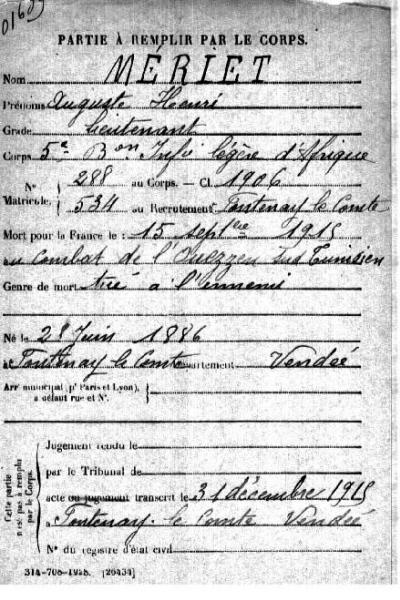 PARTIE À REMPLIR PAR LE CORPS.
Nom MÉRIET
Prénoms Auguste Henri
Grade lieutenant
Corps 5e Bon Infie légère d'Afrique
N° Matricule. { 288 au Corps. — Cl. 1906
534 au Recrutement Fontenay le Comte
Mort pour la France le : 15 septbre 1915
au Combat de l'Ouezzen Sud Tunisien
Genre de mort tué à l'ennemi
Né le 28 Juin 1886
à Fontenay le Comte Département Vendée
Arr municipal (pr Paris et Lyon), à défaut rue et N°.
Cette partie n'est pas à remplir par le Corps.
Jugement rendu le
par le Tribunal de
acte ou jugement transcrit le 31 décembre 1915
à Fontenay-le Comte Vendée
N° du registre d'état civil
314-708-1928. [26434]